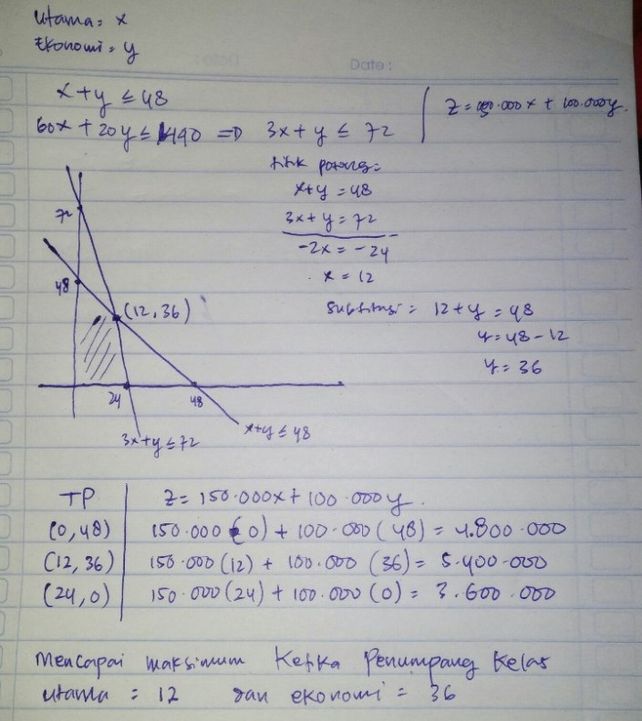 Utama = x
Ekonomi = y
Date :
x + y ≤ 48
60x + 20y ≤ 1440 => 3x + y ≤ 72
Z = 150.000x + 100.000y.
titik potong =
x+y = 48
3x + y = 72
-2x = -24
x = 12
Subtitusi = 12 + y = 48
y = 48 - 12
y = 36
72
48
(12, 36)
24
48
3x+y ≤ 72
x+y ≤ 48
TP Z = 150.000x + 100.000y.
(0, 48) 150.000 (0) + 100.000 (48) = 4.800.000
(12, 36) 150.000 (12) + 100.000 (36) = 5.400.000
(24, 0) 150.000 (24) + 100.000 (0) = 3.600.000
Mencapai maksimum Ketika Penumpang Kelas
utama = 12 dan ekonomi = 36